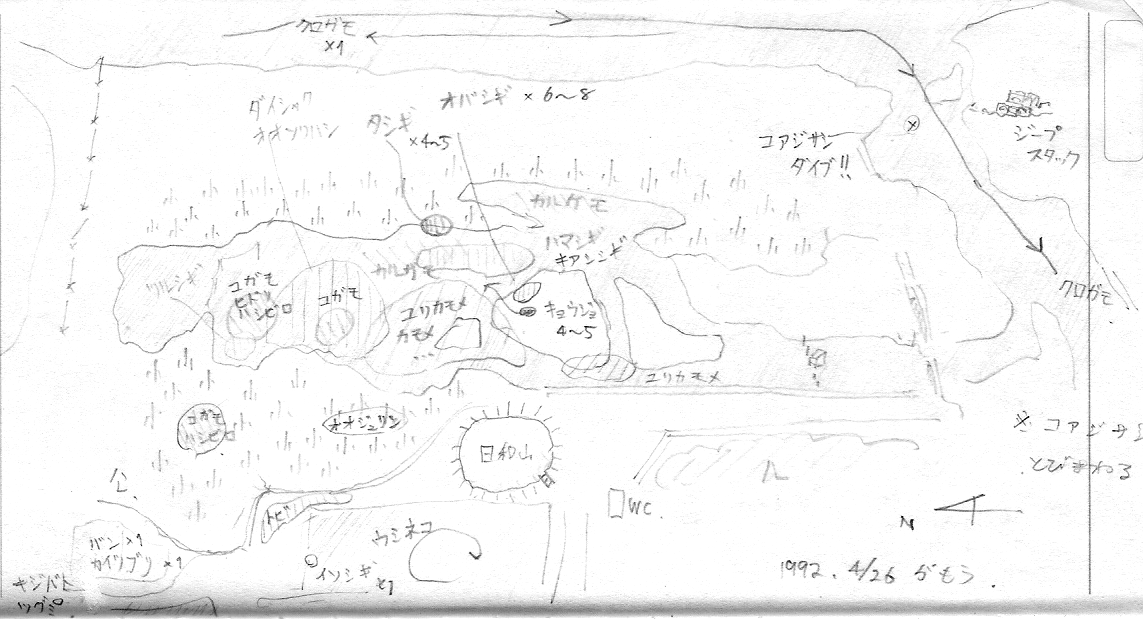 クロガモ
×1
ダイシャク
オオソリハシ
オバシギ ×6〜8
タシギ
×4〜5
コアジサシ
ダイブ!!
ジープ
スタック
カルガモ
ハマシギ
キアシシギ
ツルシギ
コガモ
ヒドリ
ハシビロ
コガモ
カルガモ
ユリカモメ
カモメ
...
キョウジョ
4〜5
クロガモ
ユリカモメ
コガモ
ハシビロ
オオジュリン
日和山
コアジサシ
とびまわる
公
WC.
N
トビ
ウミネコ
バン×1
カイツブリ×1
イソシギ
×1
キジバト
ツグミ
1992. 4/26 がもう.